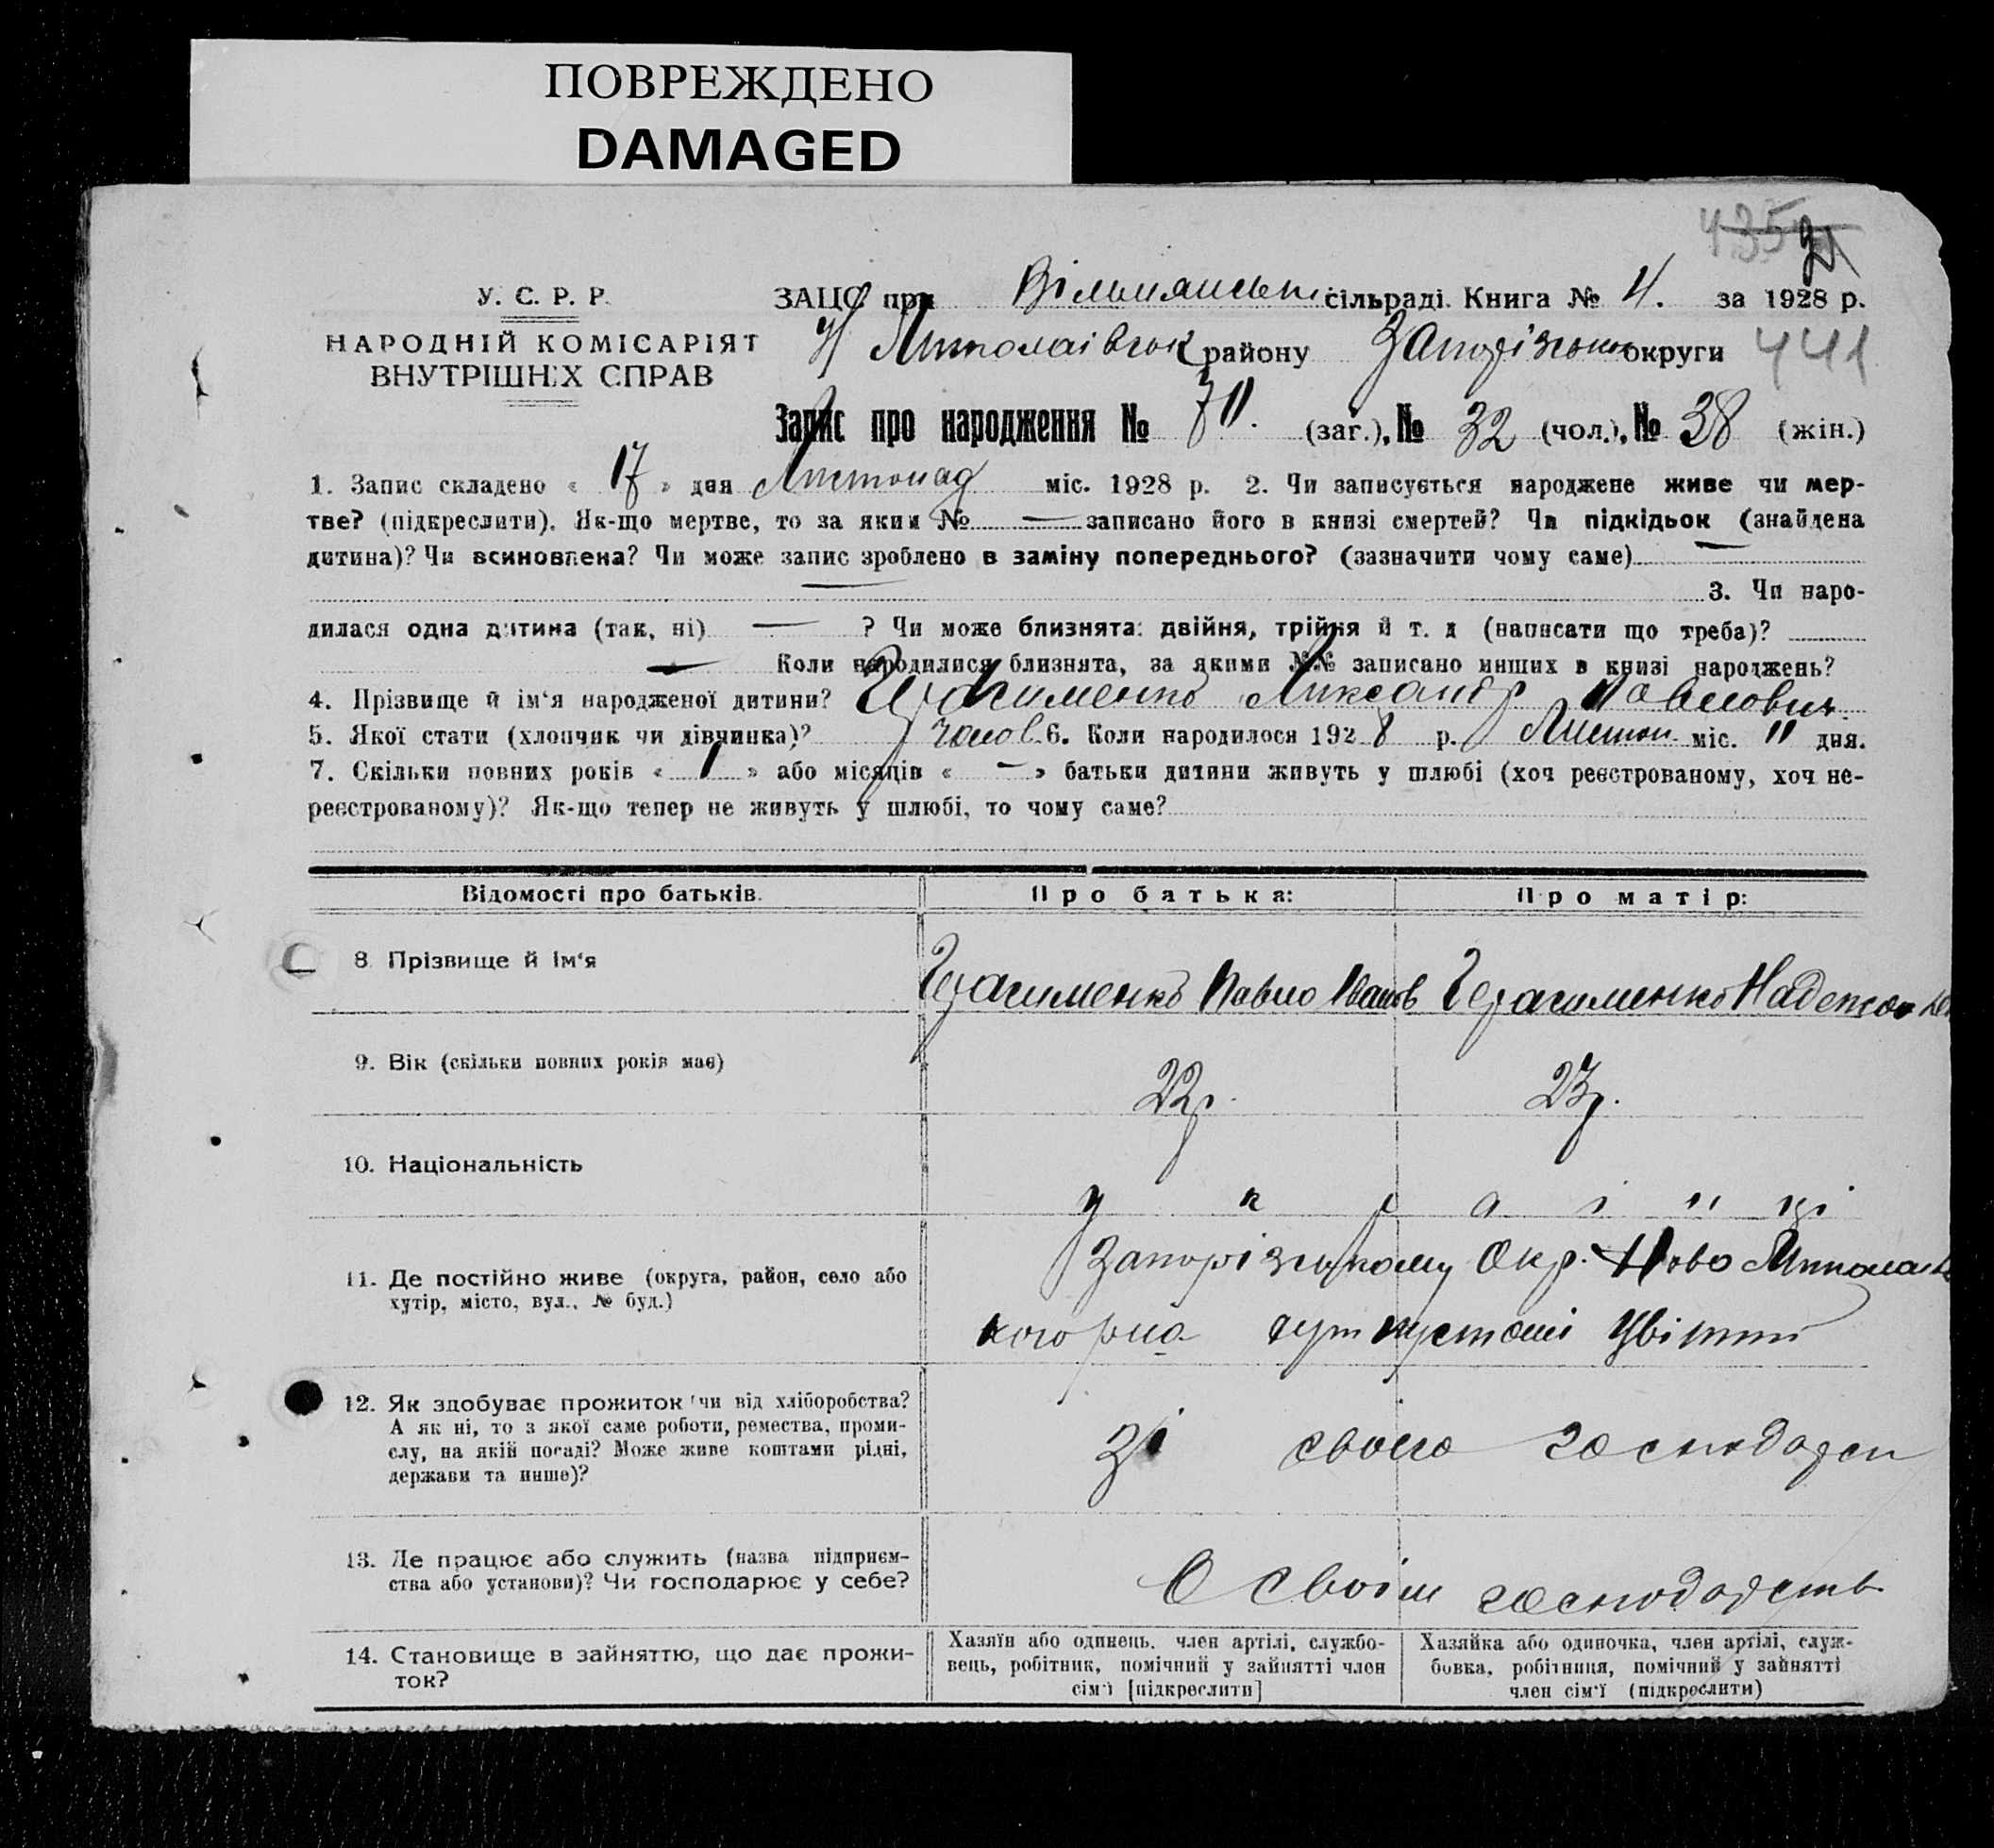 ПОВРЕЖДЕНО
DAMAGED
435
441
У. С. Р. Р.
НАРОДНІЙ КОМІСАРІЯТ
ВНУТРІШНІХ СПРАВ
ЗАЦС при Вільнянськ. сільраді. Книга № 4. за 1928 р.
Н Миколаївськ району Запорізьк округи
Запис про народження № 70. (заг.), № 32 (чол.), № 38 (жін.)
1. Запис складено « 17 » дня Листопад міс. 1928 р. 2. Чи записується народжене живе чи мер-
тве? (підкреслити). Як-що мертве, то за яким № — записано його в книзі смертей? Чи підкідьок (знайдена
дитина)? Чи всиновлена? Чи може запис зроблено в заміну попереднього? (зазначити чому саме) —
— 3. Чи наро-
дилася одна дитина (так, ні) — ? Чи може близнята: двійня, трійня й т. д (написати що треба)?
— Коли народилися близнята, за якими №№ записано инших в книзі народжень?
4. Прізвище й ім‘я народженої дитини? Герасименко Олександр Павлович.
5. Якої стати (хлопчик чи дівчинка)? чолов. 6. Коли народилося 1928 р. Листоп. міс. 11 дня.
7. Скільки повних років « 1 » або місяців « – » батьки дитини живуть у шлюбі (хоч реєстрованому, хоч не-
реєстрованому)? Як-що тепер не живуть у шлюбі, то чому саме?
Відомості про батьків. Про батька: Про матір:
8 Прізвище й ім‘я Герасименко Павло Іванов Герасименко Надежда
9. Вік (скільки повних років має) 22р. 23р.
10. Національність україн ці
11. Де постійно живе (округа, район, село або
хутір, місто, вул., № буд.)
Запорізькому Окр. Ново Миколаїв
кого р-на хут Квітки
12. Як здобуває прожиток (чи від хліборобства?
А як ні, то з якої саме роботи, ремества, проми-
слу, на якій посаді? Може живе коштами рідні,
держави та инше)?
Зі свого господарств
13. Де працює або служить (назва підприєм-
ства або установи)? Чи господарює у себе?
В своім господарств
14. Становище в зайняттю, що дає прожи-
ток?
Хазяїн або одинець, член артілі, службо-
вець, робітник, помічний у зайнятті член
сім‘ї [підкреслити]
Хазяйка або одиночка, член артілі, служ-
бовка, робітниця, помічний у зайнятті
член сім‘ї (підкреслити)